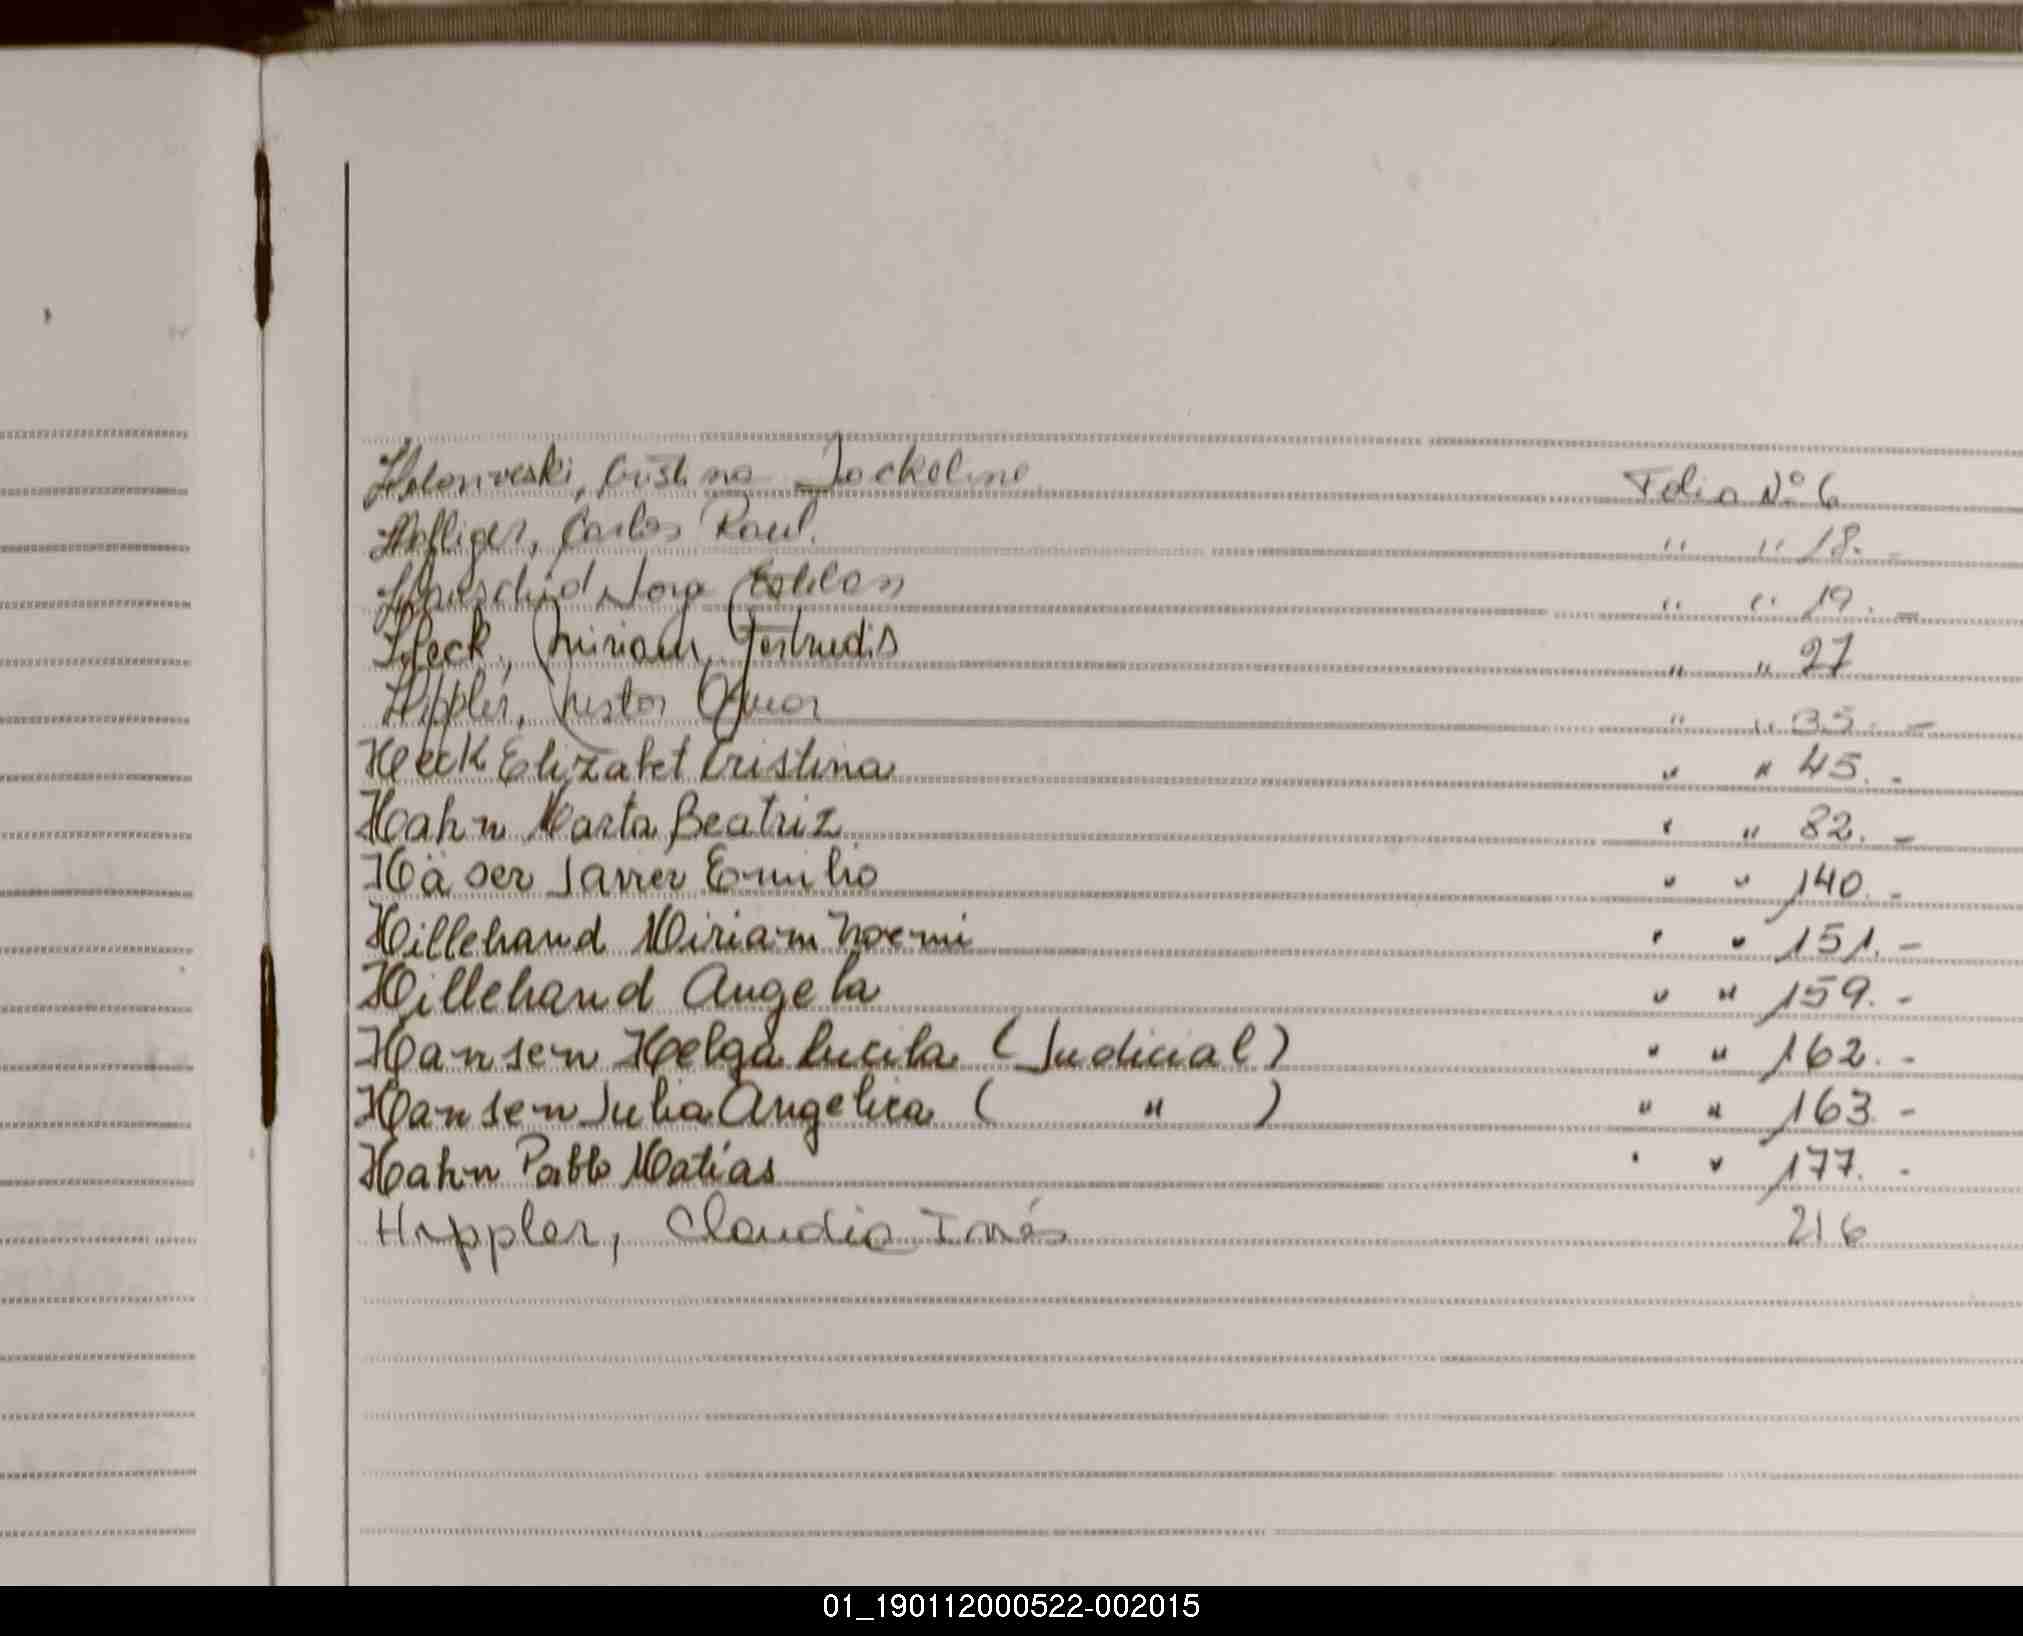 Holonveski, Cristina Jockeline Folio Nº 6
Hofliger, Carlos Raul. " " 18. -
Nora " " 19. -
Heck, Miriam Gertrudis " " 27
Hippler, Nestor Omar " " 35. -
Heck Elizabet Cristina " " 45. -
Hahn Marta Beatriz " " 82. -
Häser Javier Emilio " " 140. -
Hillehand Miriam Noemi " " 151. -
Hillehand Angela " " 159. -
Hansen Helga Lucila (Judicial) " " 162. -
Hansen Julia Angelica ( " ) " " 163 -
Hahn Pablo Matías " " 177. -
Hippler, Claudia Inés 216
01_190112000522-002015